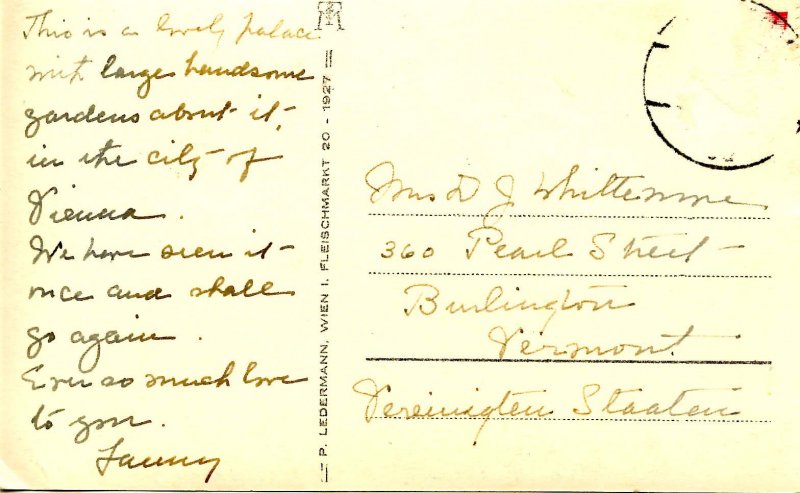 This is a lovely palace
with large handsome
gardens about it,
in the city of
Vienna.
We have seen it
once and shall
go again.
Ever so much love
to you.
Fanny
P. LEDERMANN, WIEN I. FLEISCHMARKT 20 - 1927
Mrs D J Whittemore
360 Pearl Street
Burlington
Vermont.
Vereinigten Staaten